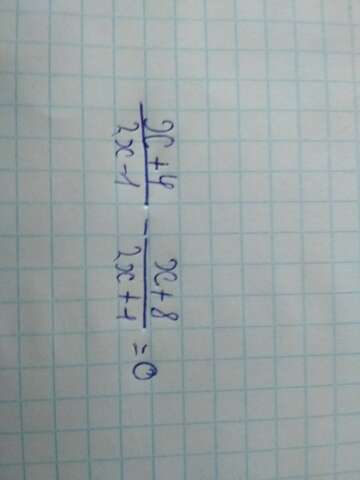 x+4/2x-1 - x+8/2x+1 = 0